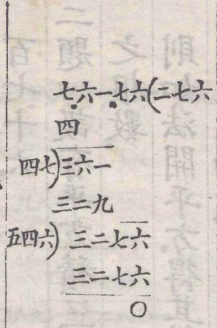 七六一七六(二七六
四
四七)三六一
三二九
五四六)三二七六
三二七六
〇